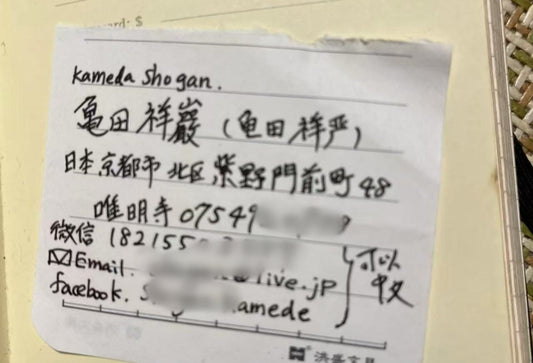 Kameda Shogan.
亀田 祥巖 (龟田 祥严)
日本京都市 北区 紫野門前町 48
唯明寺 07549
微信 182155
Email. live.jp 可以
facebook. amede 中文